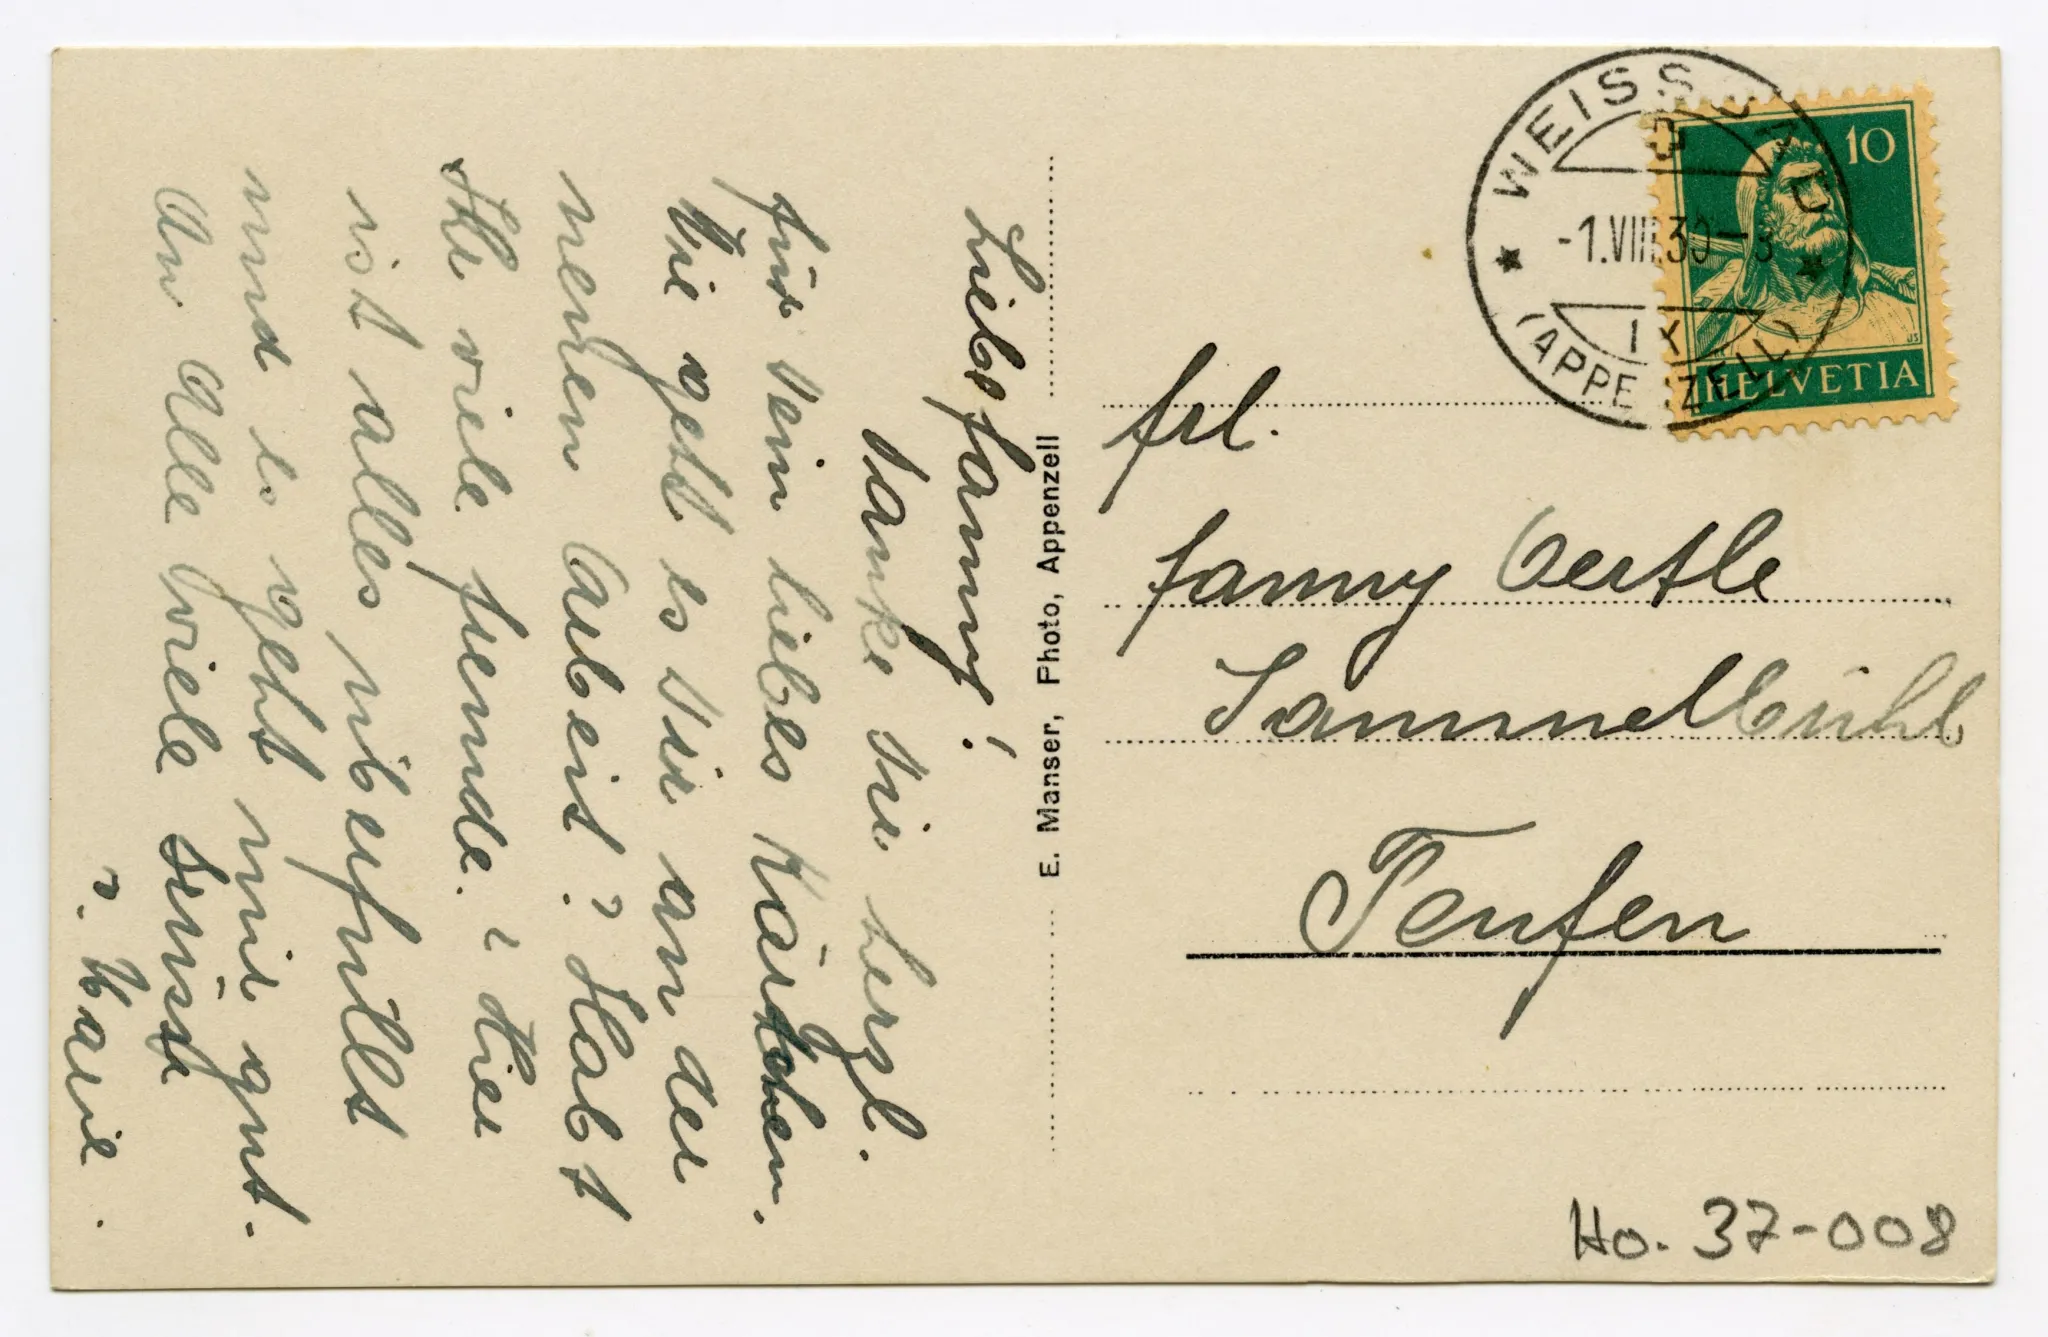 Liebs Fanny!
Danke Dir herzl.
für Dein liebes Kärtchen.
Wie geht es Dir an der
neuen Arbeit? Habt
Ihr viele Fremde. Hier
ist alles überfüllt
und es geht mir gut.
An Alle viele Grüsse
v. Marie.
E. Manser, Photo, Appenzell
WEISSBAD
-1.VIII.30-8
IX
(APPENZELL)
10
HELVETIA
Frl.
Fanny Oertle
Sammelbühl
Teufen
Ho. 37-008